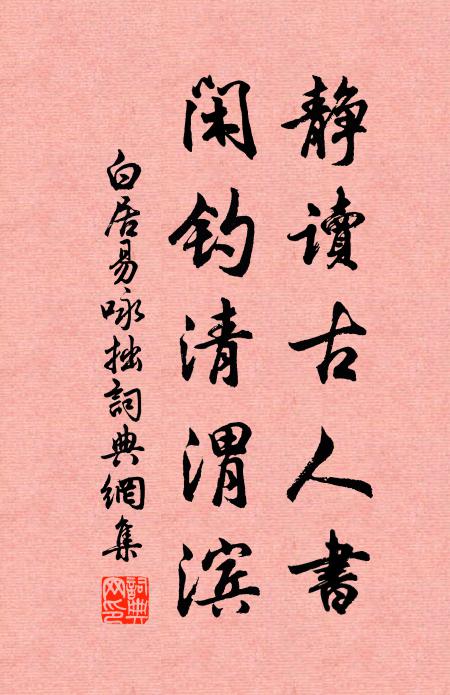 静讀古人書
闲钓清渭滨
白居易咏拙詞典網集
詞典網印